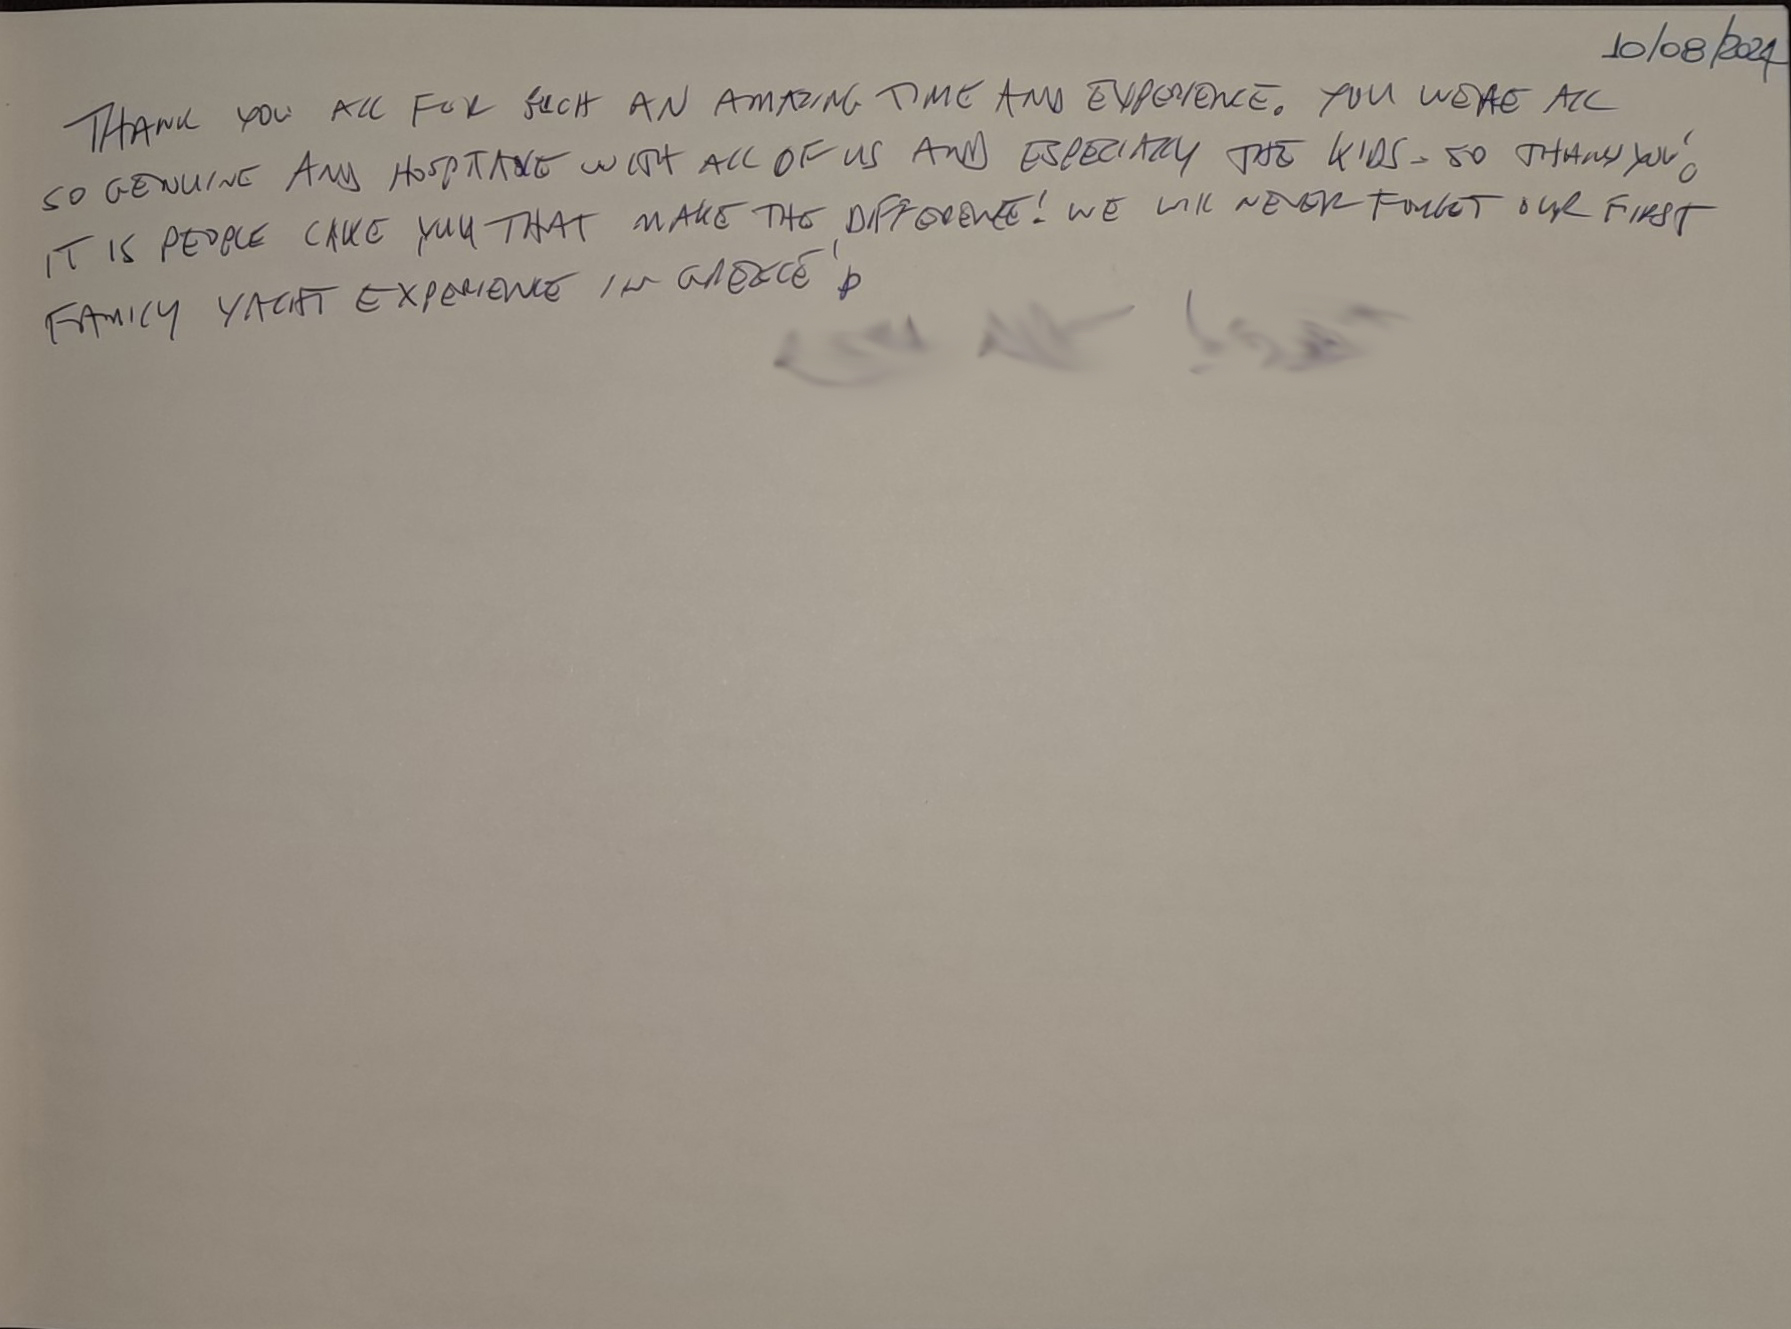 10/08/2024
THANK YOU ALL FOR SUCH AN AMAZING TIME AND EXPERIENCE. YOU WERE ALL
SO GENUINE AND HOSPTABLE WITH ALL OF US AND ESPECIALLY THE KIDS - SO THANK YOU!
IT IS PEOPLE LIKE YOU THAT MAKE THE DIFFERENCE! WE WILL NEVER FORGET OUR FIRST
FAMILY YACHT EXPERIENCE IN GREECE!